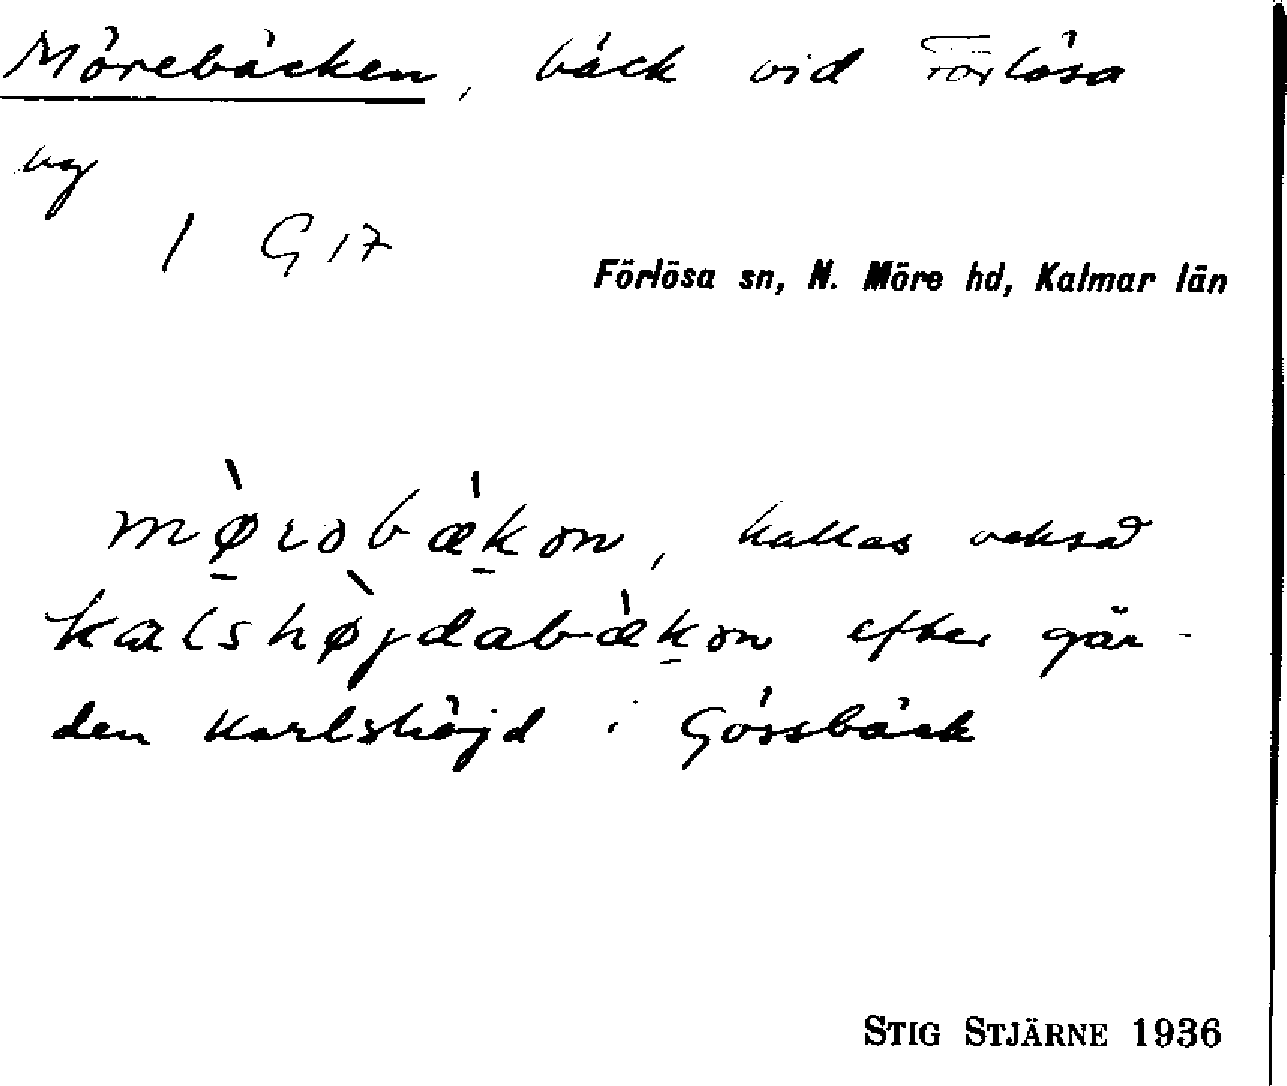 Mörebäcken, bäck vid Förlösa
by
1 G 17
Förlösa sn, N. Möre hd, Kalmar län
mø̀rəbæ̀kən, kallas också
kalshø̀jdabæ̀kən efter går-
den Karlshöjd i Gössbäck
STIG STJÄRNE 1936